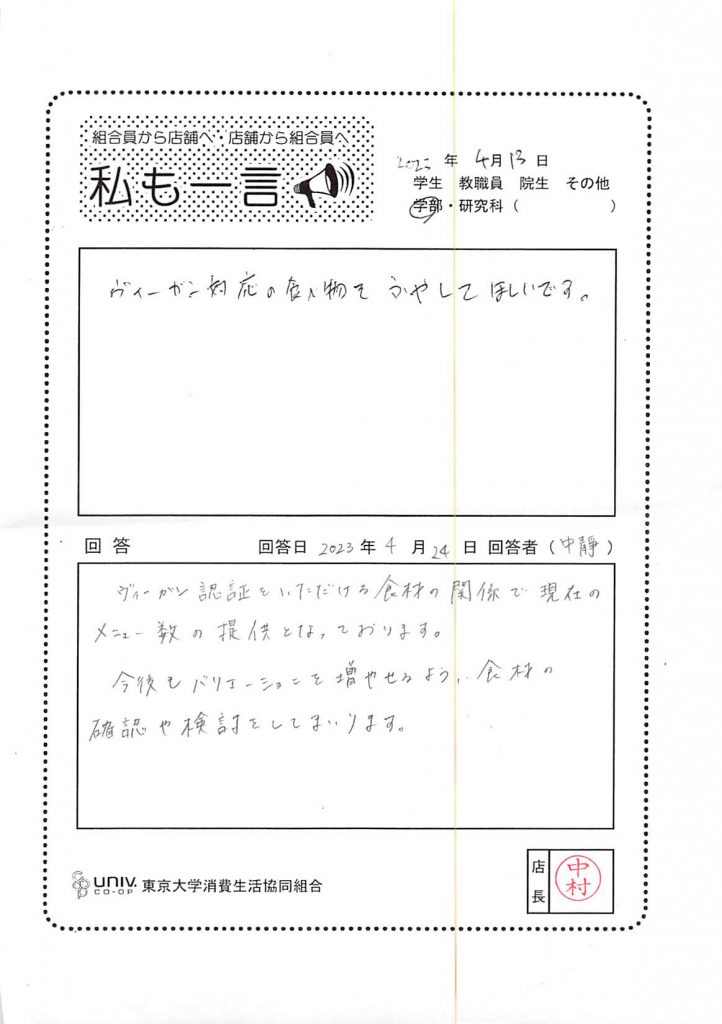 組合員から店舗へ・店舗から組合員へ
私も一言
年 4月13日
学生 教職員 院生 その他
学部・研究科（ ）
ヴィーガン対応の食べ物を ふやして ほしいです。
回答 回答日 2023年4月24日 回答者（中靜）
ヴィーガン認証をいただける食材の関係で現在の
メニュー数の提供となっております。
今後もバリエーションを増やせるよう、食材の
確認や検討をしてまいります。
UNIV. CO-OP 東京大学消費生活協同組合
店長 中村